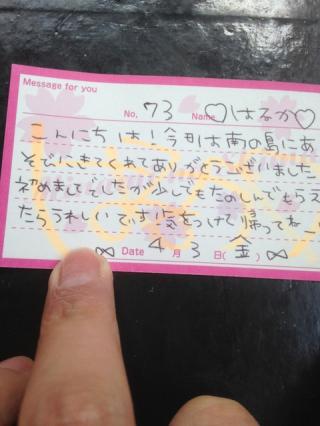 Message for you
No. 73 Name ♡はるか♡
こんにちは!今日は南の島にあ
そびにきてくれてありがとうございました
初めましてでしたが少しでもたのしんでもらえ
たらうれしいです!気をつけて帰ってね
Date 4月3日(金)